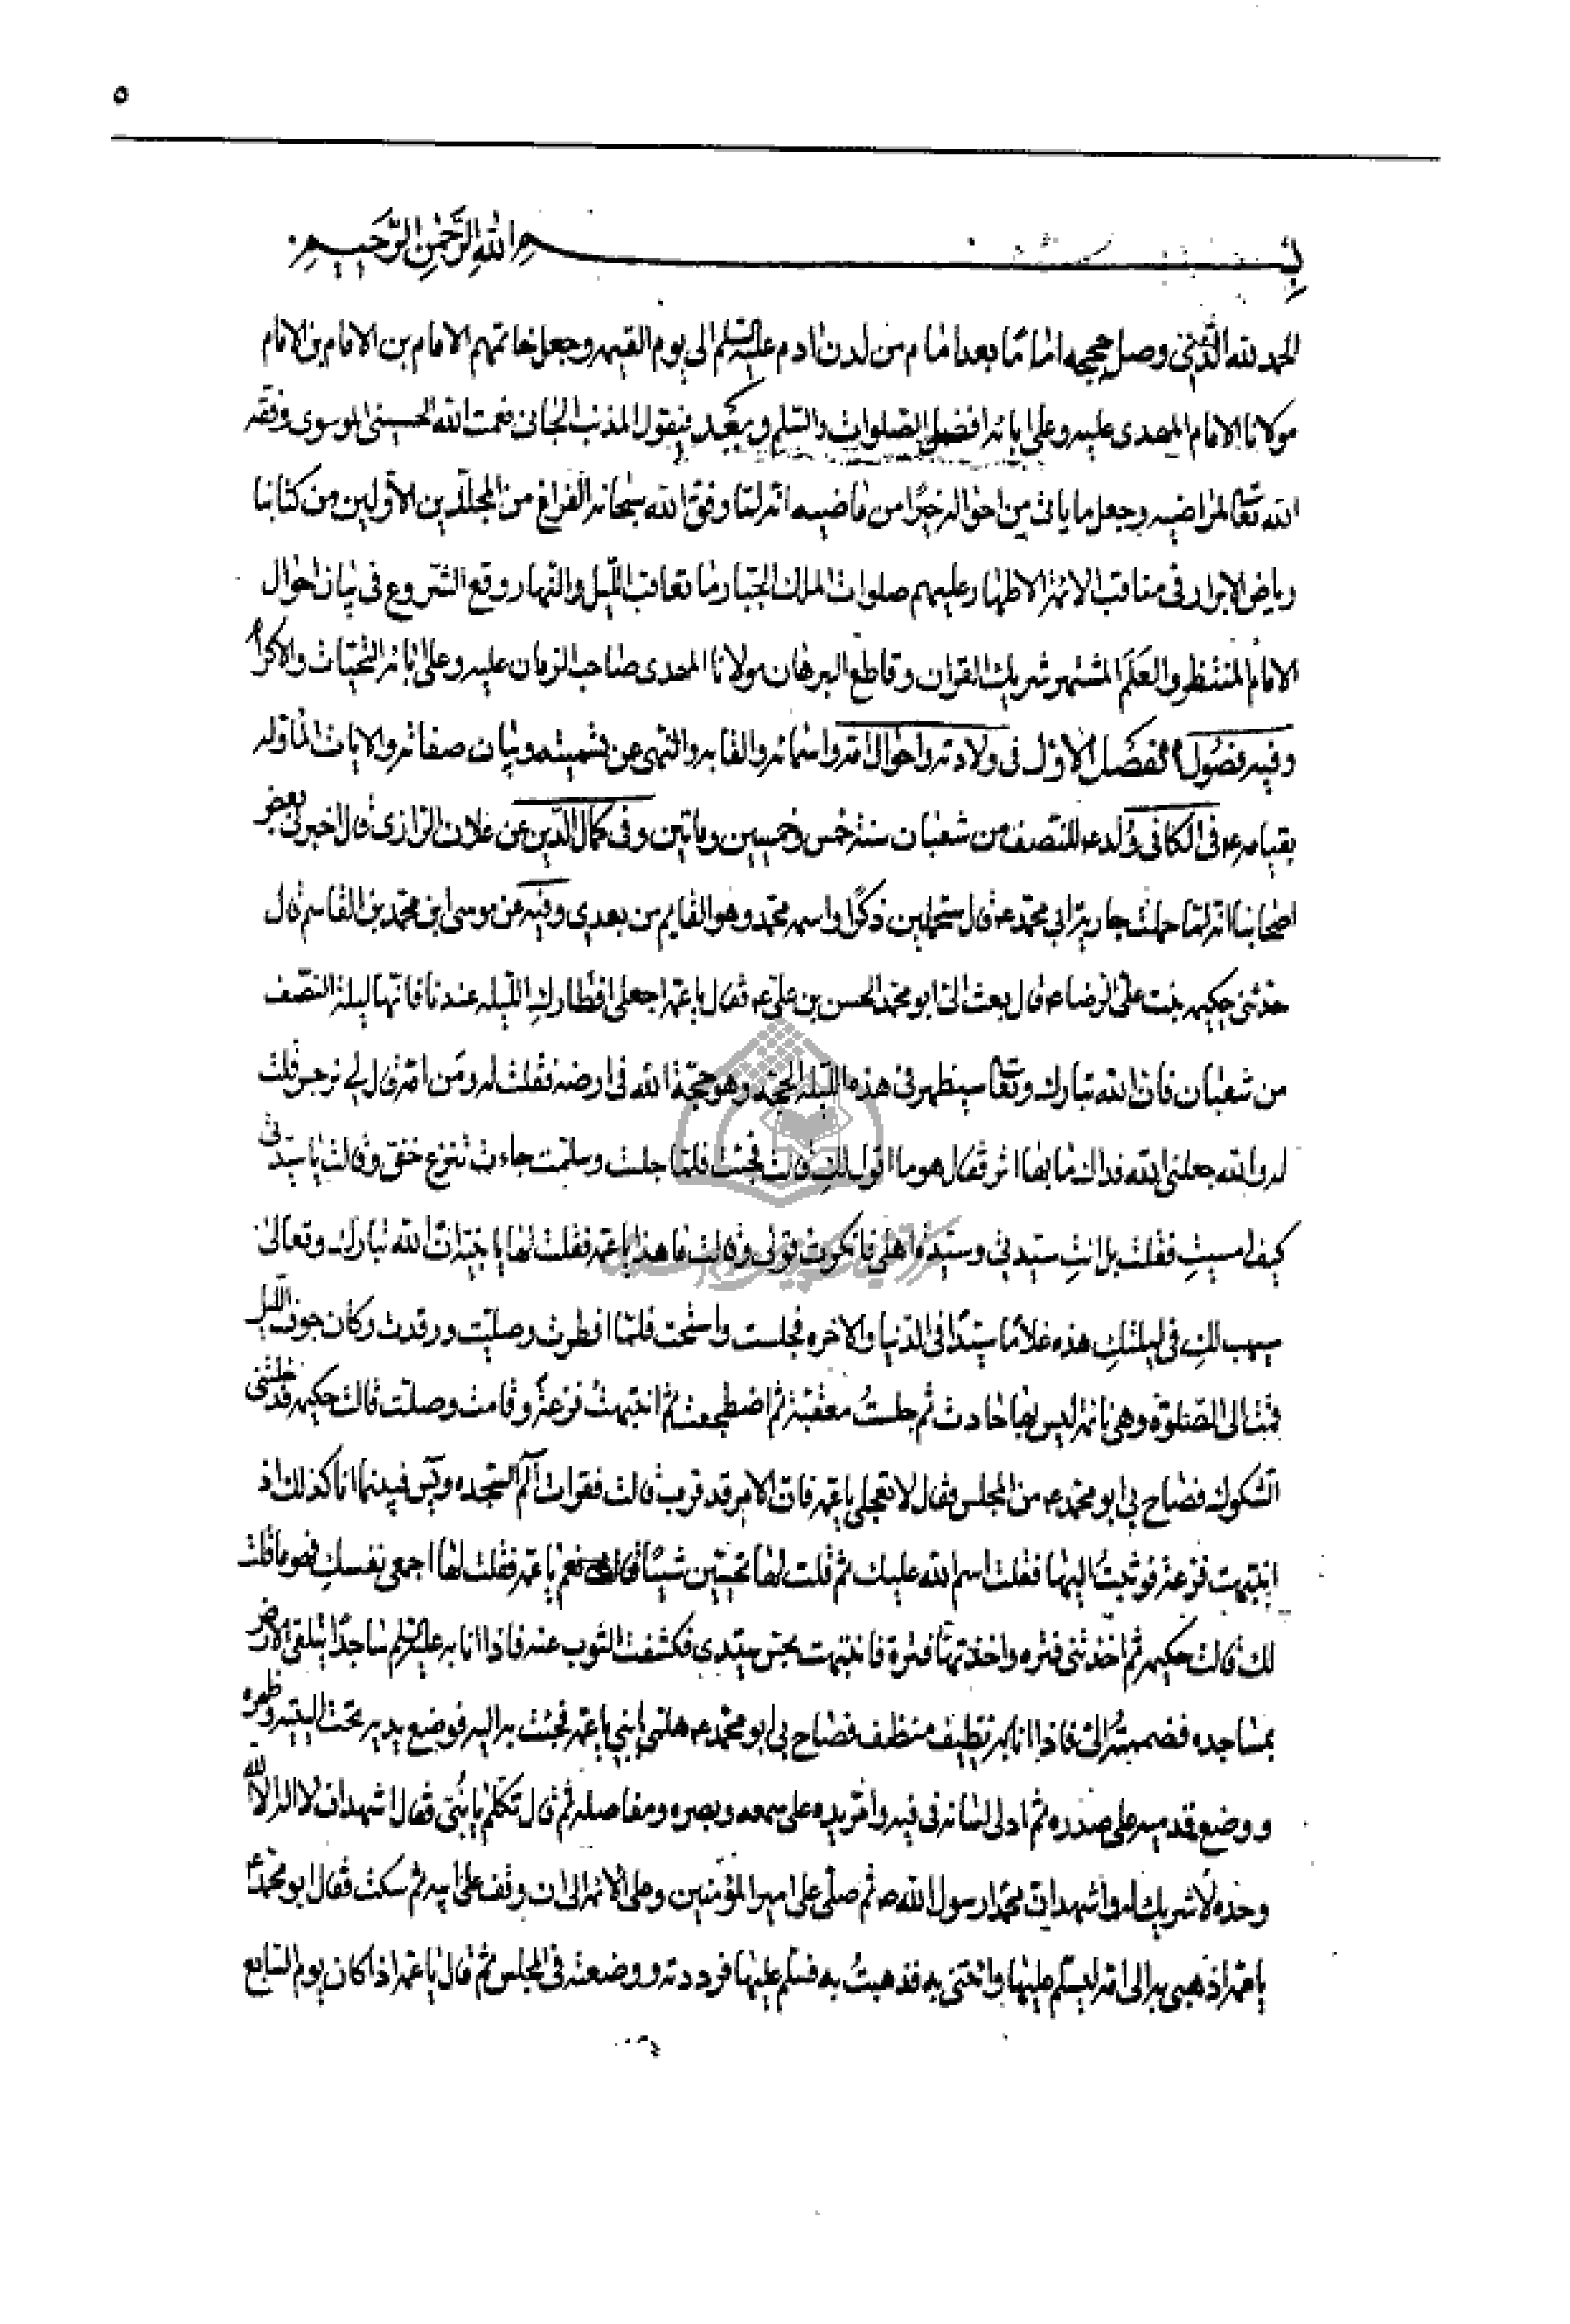 ٥
بسم الله الرحمن الرحيم
الحمد لله الذي وصل حججه اماما بعد امام من لدن ادم عليه السلم الى يوم القيمه وجعل خاتمهم الامام بن الامام بن الامام
مولانا الامام المهدى عليه وعلى ابائه افضل الصلوات والسلم وبعد فيقول المذنب الجانى نعمت الله الحسينى الموسوى وفقه
الله تعالى لمراضيه وجعل ما ياتى من احواله خيرًا من ماضيه انه لما وفق الله سبحانه الفراغ من المجلدين الاولين من كتابنا
رياض الابرار فى مناقب الائمة الاطهار عليهم صلوات الملك الجبار ما تعاقب الليل والنهار وقع الشروع فى بيان احوال
الامام المنتظر والعلم المشتهر شريك القران وقاطع البرهان مولانا المهدى صاحب الزمان عليه وعلى ابائه التحيات والاكرام
وفيه فصول الفصل الاول فى ولادته واحوال امه واسمائه والقابه والنهى عن تسميته وبيان صفاته والايات الماوله
بقيامه ع فى الكافى ولد ع للنصف من شعبان سنة خمس وخمسين وماتين وفى كمال الدين عن علان الرازى قال اخبرنى بعض
اصحابنا انه لما حملت جارية ابي محمد ع قال ستحملين ذكرًا واسمه محمد وهو القايم من بعدى وفيه عن موسى ابن محمد بن القاسم قال
حدثنى حكيمه بنت على الرضا ع قال بعث الىّ ابو محمد الحسن بن على ع فقال يا عمه اجعلى افطارك الليله عندنا فانها ليلة النصف
من شعبان فان الله تبارك وتعالى سيظهر فى هذه الليله الحجه وهو حجة الله فى ارضه فقلت له ومن امه قال لي نرجس قلت
له والله جعلنى الله فداك ما بها اثر فقال هو ما اقول لك قالت فجئت فلما سلمت وجلست جاءت تنزع خفى وقالت يا سيدتى
كيف امسيتِ فقلت بل انتِ سيدتى وسيدة اهلى فانكرت قولى وقالت ما هذا يا عمه فقلت لها يا بنية ان الله تبارك وتعالى
سيهب لكِ فى ليلتكِ هذه غلامًا سيدًا فى الدنيا والاخره فجلست واستحت فلما افطرت وصليت ورقدت وكان جوف الليل
قمت الى الصلوة وهى نائمة ليس بها حادث ثم جلستُ معقبة ثم اضطجعت ثم انتبهت فزعة وقامت وصلت قالت حكيمه فدخلتنى
الشكوك فصاح بى ابو محمد ع من المجلس فقال لا تعجلى يا عمه فان الامر قد قرب قالت فقرات الم السجده ويس فبينما انا كذلك اذ
انتبهت فزعة فوثبتُ اليها فقلت اسم الله عليك ثم قلت لها تحسين شيئًا قالت نعم يا عمه فقلت لها اجمعى نفسكِ فهو ما قلت
لك قالت حكيمه ثم اخذتنى فتره واخذتها فترة فانتبهت بحس سيدى فكشفت الثوب عنه فاذا انا به عليه السلم ساجدًا يتلقى الارض
بمساجده فضممته الىّ فاذا انا به نظيف منظف فصاح بى ابو محمد ع هلمى ابني يا عمه فجئت به اليه فوضع يديه تحت اليتيه وظهره
ووضع قدميه على صدره ثم ادلى لسانه فى فيه وامر يده على سمعه وبصره ومفاصله ثم قال تكلم يا بُنى فقال اشهد ان لا اله الا الله
وحده لا شريك له واشهد ان محمدا رسول الله ص ثم صلى على امير المؤمنين وعلى الائمه الى ان وقف على ابيه ثم سكت فقال ابو محمد ع
يا عمه اذهبى به الى امه ليسلم عليها وائتنى به فذهبتُ به فسلم عليها فرددته ووضعته فى المجلس ثم قال يا عمه اذا كان يوم السابع